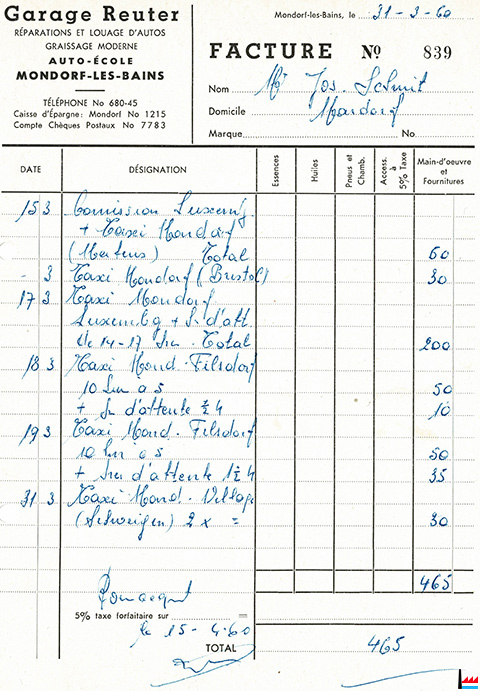 Garage Reuter
RÉPARATIONS ET LOUAGE D'AUTOS
GRAISSAGE MODERNE
AUTO-ÉCOLE
MONDORF-LES-BAINS
TÉLÉPHONE No 680-45
Caisse d'Épargne: Mondorf No 1215
Compte Chèques Postaux No 7783
Mondorf-les-Bains, le 31-3-60
FACTURE No 839
Nom Mr Jos. Schmit
Domicile Mondorf
Marque No.
DATE DÉSIGNATION Essences Huiles Pneus et Chamb. Access. à 5% Taxe Main-d'oeuvre et Fournitures
15 3 Comission Luxembg
+ Taxi Mondorf
(Mertens) Total 60
- 3 Taxi Mondorf (Bristol) 30
17 3 Taxi Mondorf
Luxembg + d'att.
de 14-17 hr. Total 200
18 3 Taxi Mond. Filsdorf
10 km à 5 50
+ d'attente ½ 4 10
19 3 Taxi Mond. Filsdorf
10 km à 5 50
+ d'attente 1½ 4 35
31 3 Taxi Mond. Village
2 x = 30
465
Pour acquit
5% taxe forfaitaire sur =
le 15-4-60
TOTAL 465